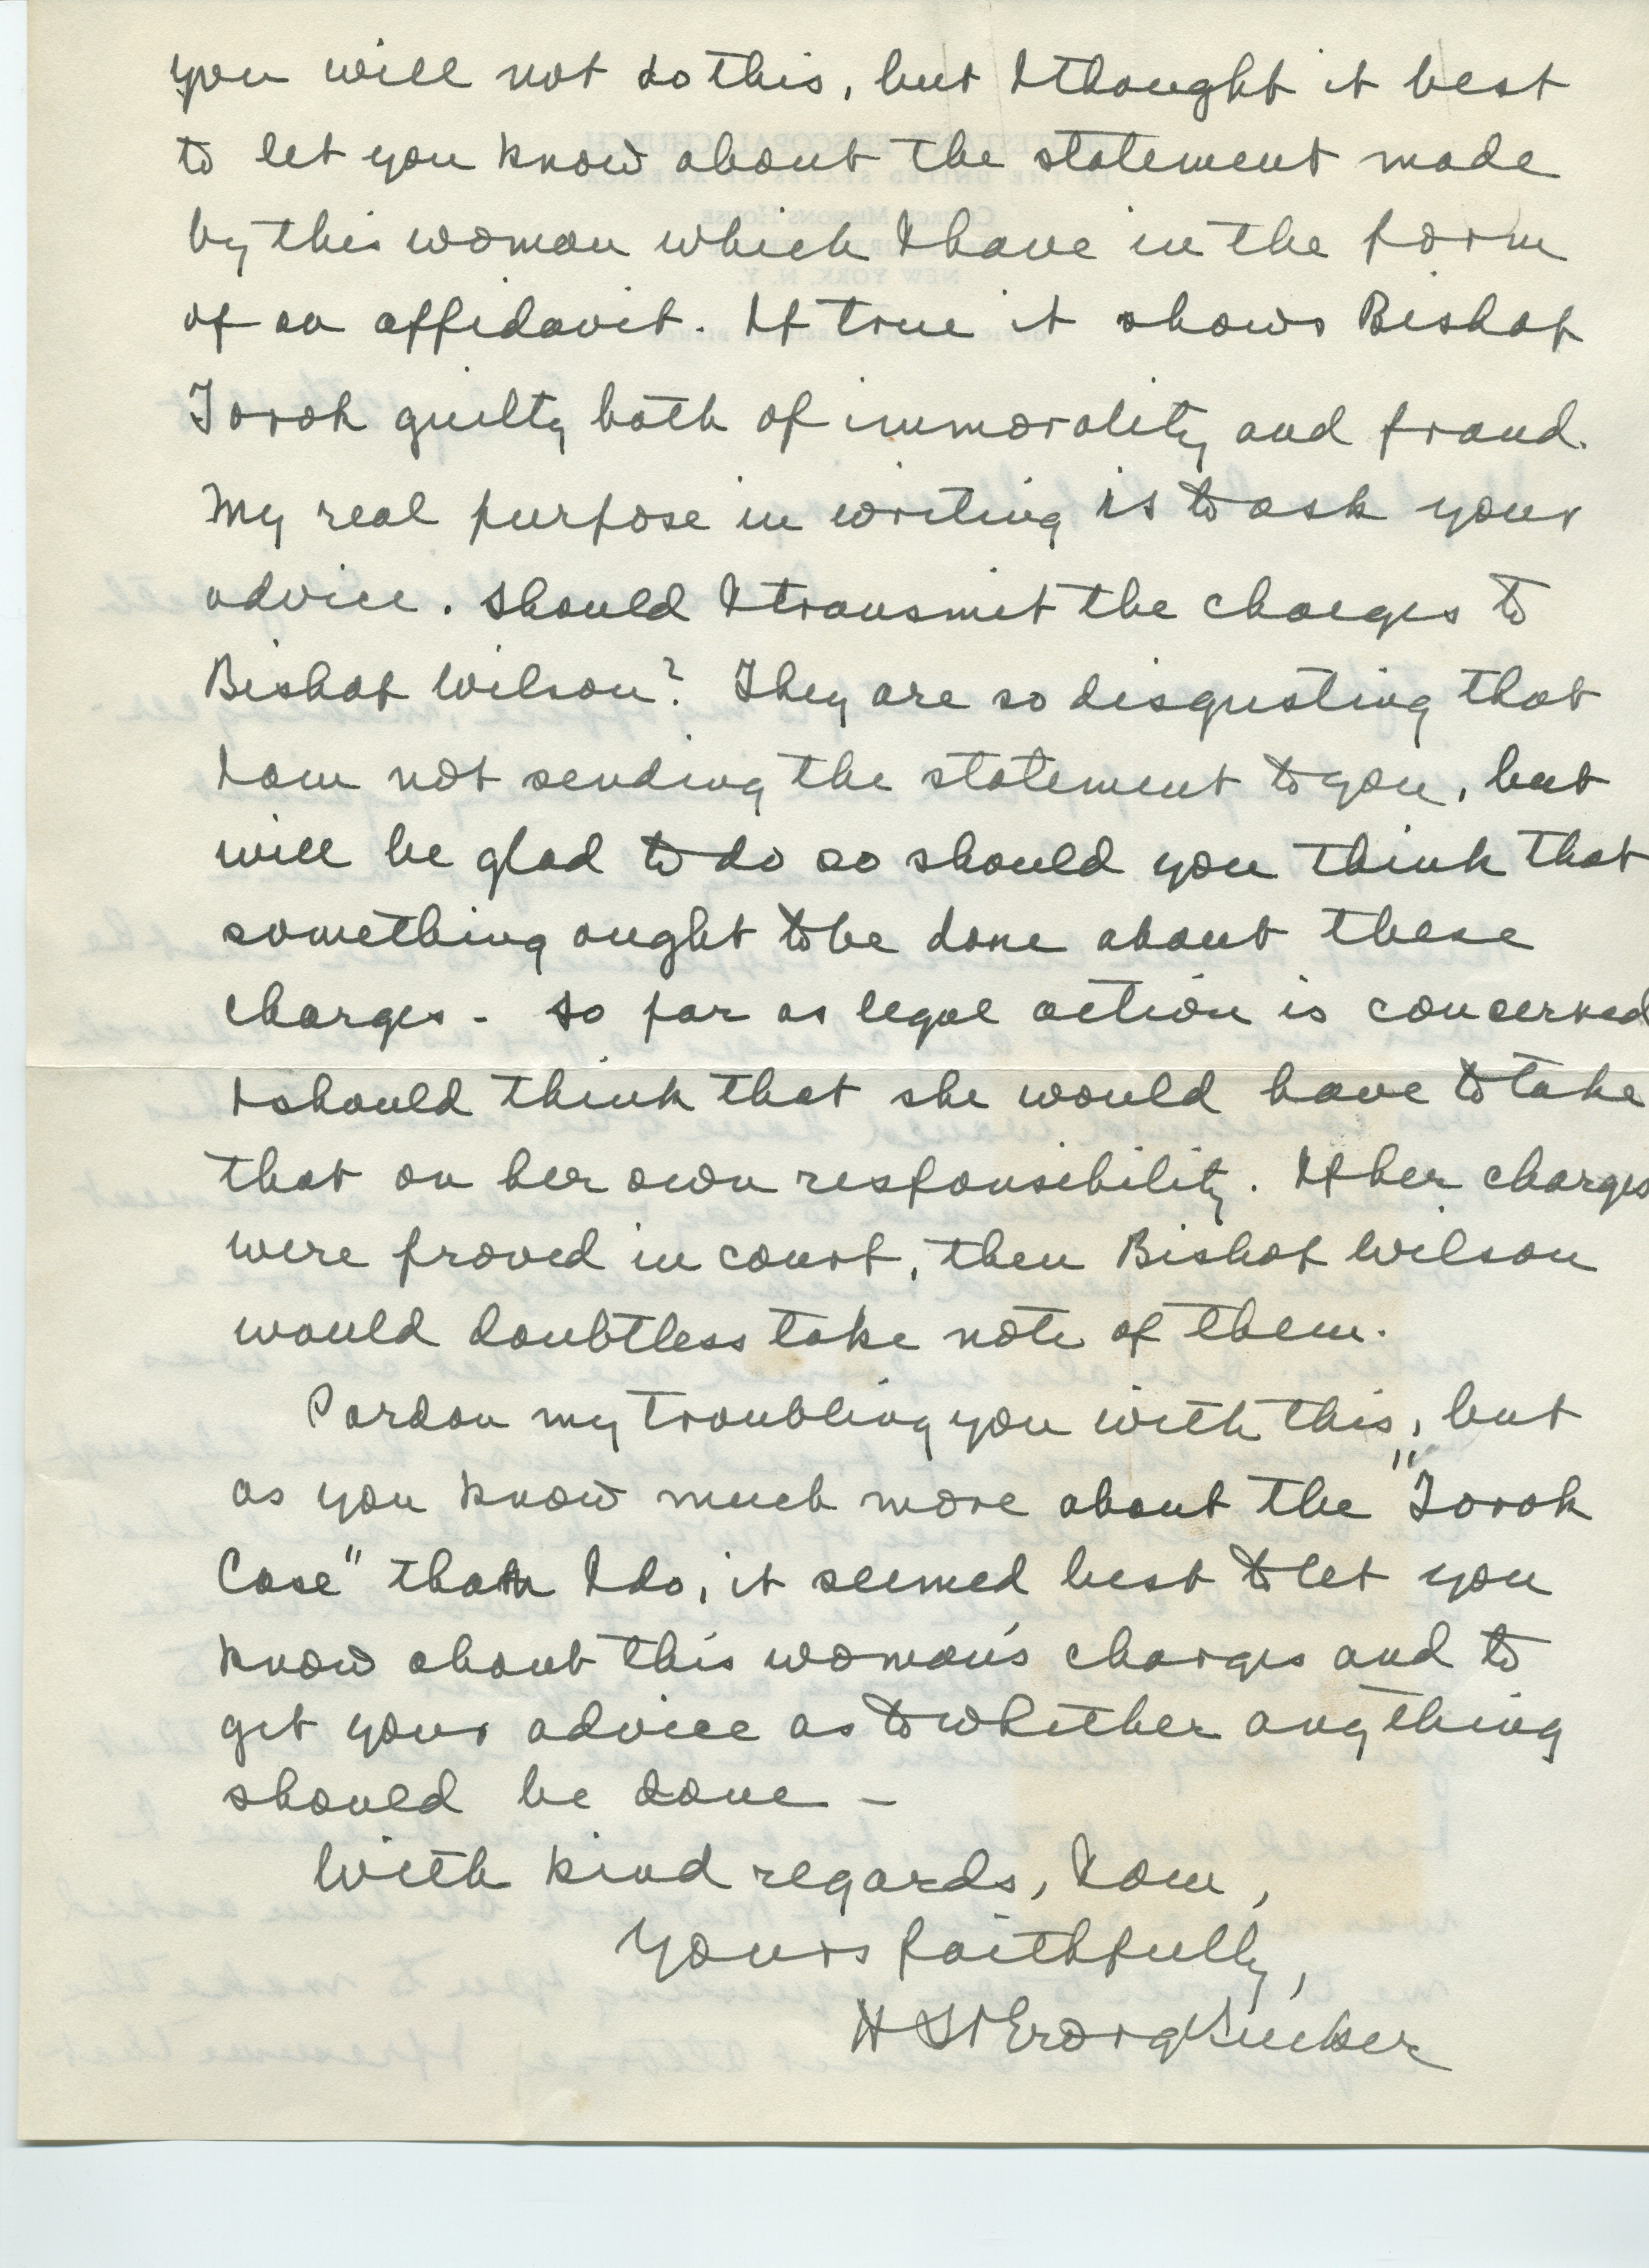 you will not do this, but I thought it best
to let you know about the statement made
by this woman which I have in the form
of an affidavit. If true it shows Bishop
Torok guilty both of immorality and fraud.
My real purpose in writing is to ask your
advice. Should I transmit the charges to
Bishop Wilson? They are so disgusting that
I am not sending the statement to you, but
will be glad to do so should you think that
something ought to be done about these
charges - So far as legal action is concerned
I should think that she would have to take
that on her own responsibility. If her charges
were proved in court, then Bishop Wilson
would doubtless take note of them.
Pardon my troubling you with this, but
as you know much more about the "Torok
Case" than I do, it seemed best to let you
know about this woman's charges and to
get your advice as to whether anything
should be done -
With kind regards, I am,
Yours faithfully,
H St George Tucker